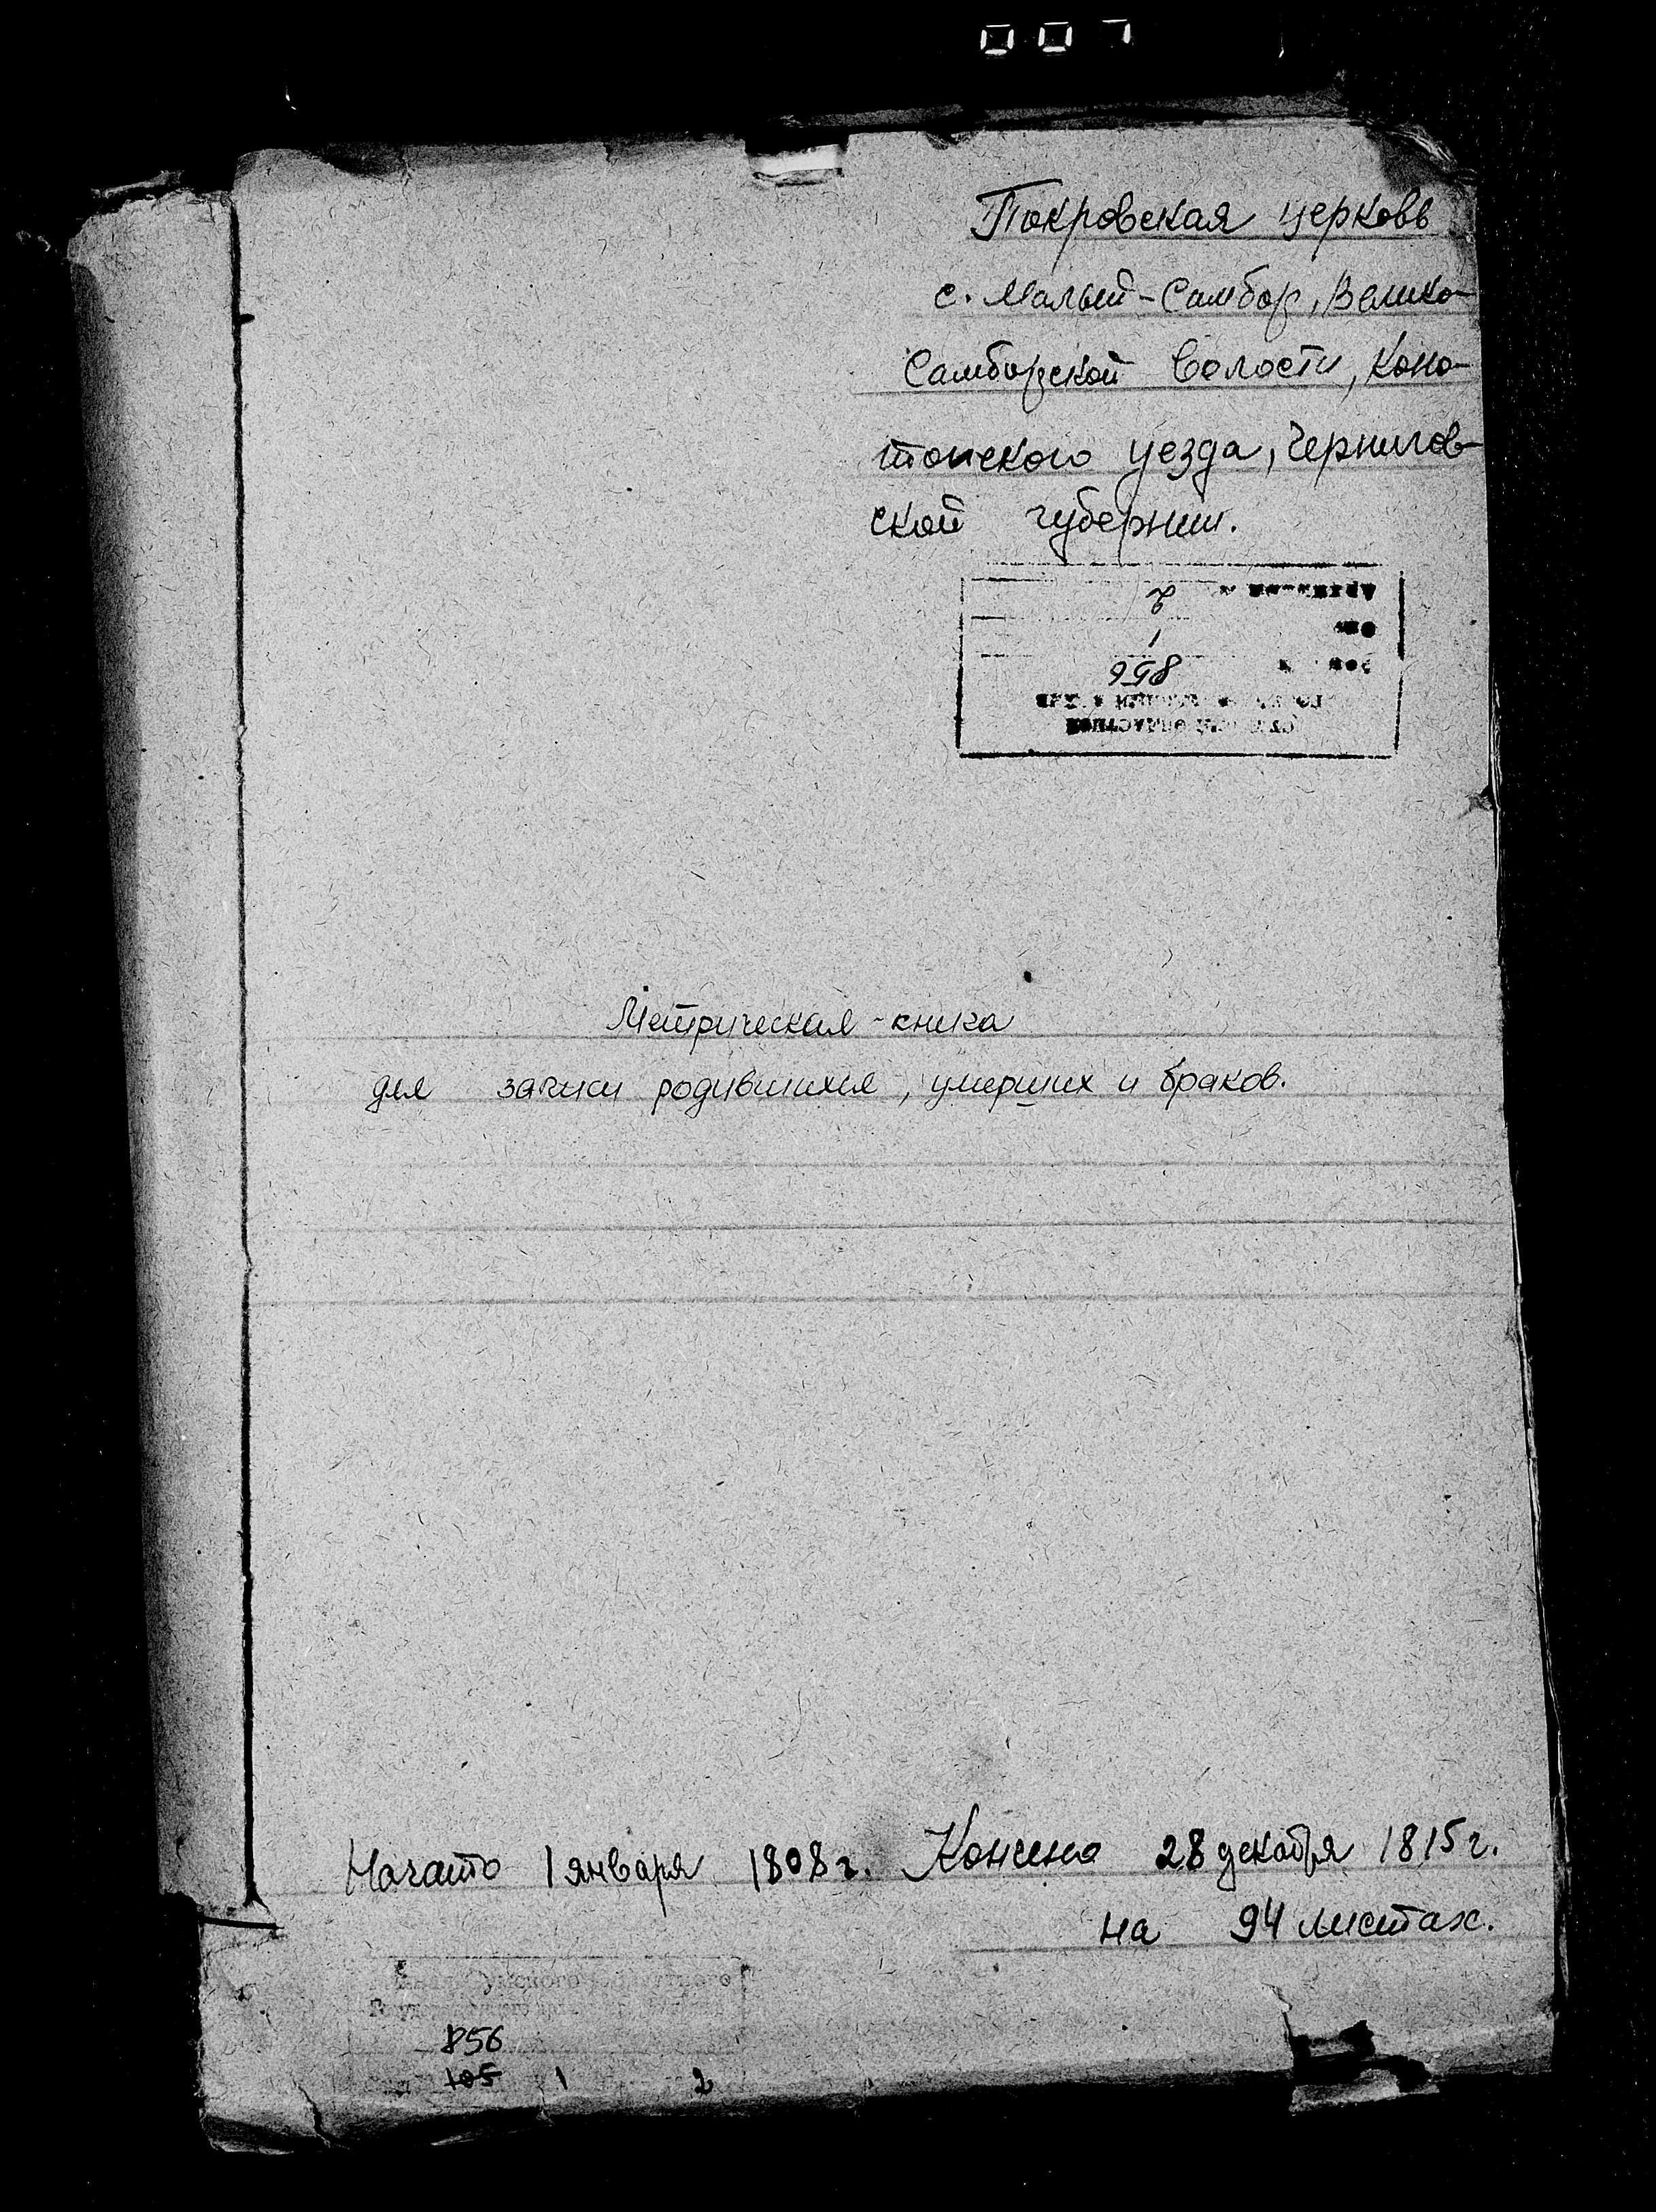 007
Покровская церковь
с. Малый-Самбор, Велико-
Самборской волости, Коно-
топского уезда, Чернигов-
ской губернии.
2
1
856
Метрическая-книга
для записи родившихся, умерших и браков.
Начато 1 января 1808 г. Кончено 28 декабря 1815 г.
на 94 листах.
856
105 1 2